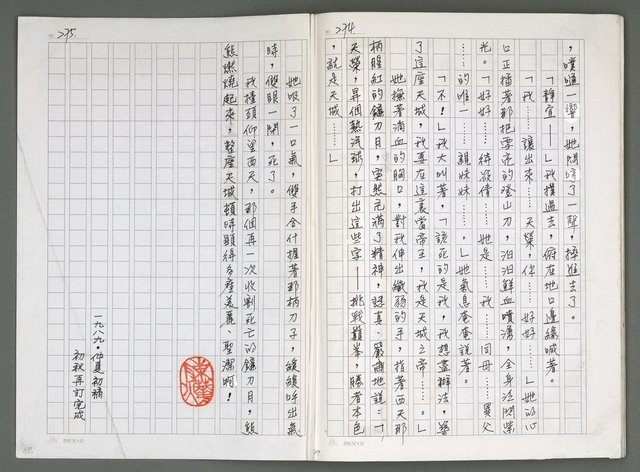 274.
，噗嗤一響，她悶哼了一聲，摔進去了。
「靜宜——」我撲過去，俯在地口邊緣喊著。
「我……讓出來……天榮，你……好好……」她的心
口正插著那把要死的登山刀，汩汩鮮血噴湧，全身泛閃紫
光。「好好……待欲倩……她是……我……同母……異父
……的唯一……親妹妹……。」她氣息奄奄說著。
「不！」我大叫著，「該死的是我，我想盡辦法，築
了這座天城，我要在這裏當帝王，我是天城之帝……。」
她撫著淌血的胸口，對我伸出纖弱的手，指著西天那
柄腥紅的鐮刀月，突然充滿了精神，認真、嚴肅地說：「那
天榮，昇個熱汽球，打出這些字——挑戰巔峯，勝者本色
，就是天城……」
275.
她吸了一口氣，雙手合什握著那柄刀子，緩緩呼出氣
時，雙眼一閉，死了。
我擡頭仰望西天，那個再一次收割死亡的鐮刀月，熊
熊燃燒起來，整座天城頓時顯得多座美麗、聖潔啊！
一九八九・仲夏初稿
初秋再訂完成
25X12
25X12